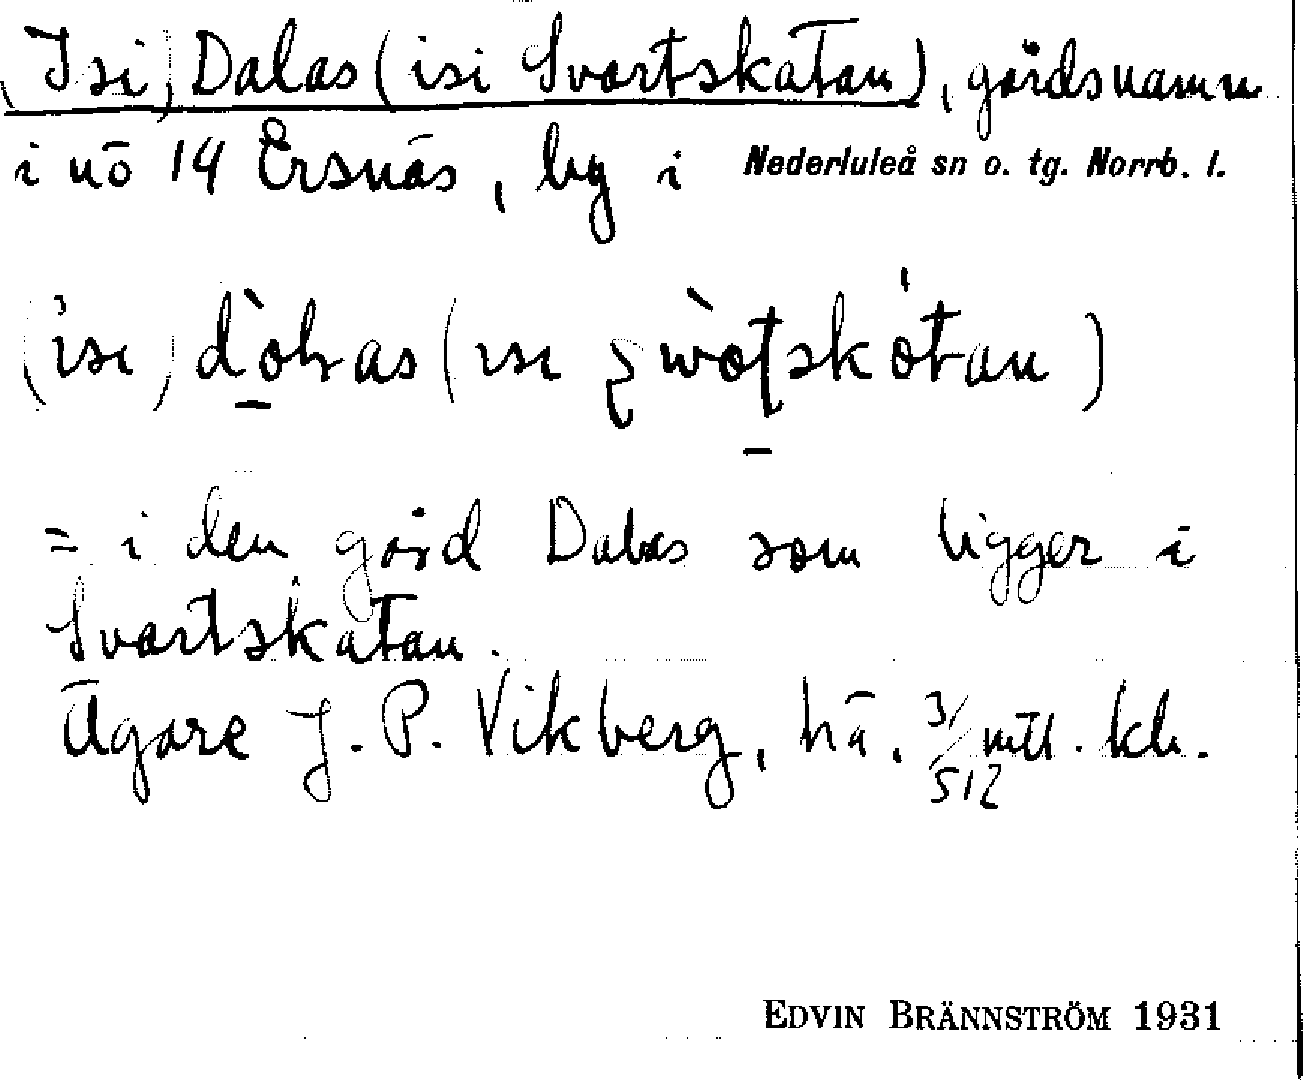 (Isi) Dalas (isi Svartskatan), gårdsnamn
i nō 14 Ersnäs, by i Nederluleå sn o. tg. Norrb. l.
(ısı)
= i den gård Dalas som ligger i
Svartskatan.
Ägare J. P. Vikberg, hā. 3/512 mtl. kr.
EDVIN BRÄNNSTRÖM 1931